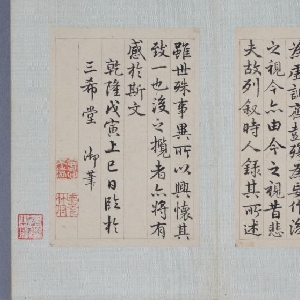 為虛誕齊彭殤為妄作後
之視今亦由今之視昔悲
夫故列敘時人錄其所述
雖世殊事異所以興懷其
致一也後之攬者亦將有
感於斯文
乾隆戊寅上巳日臨於
三希堂 御筆